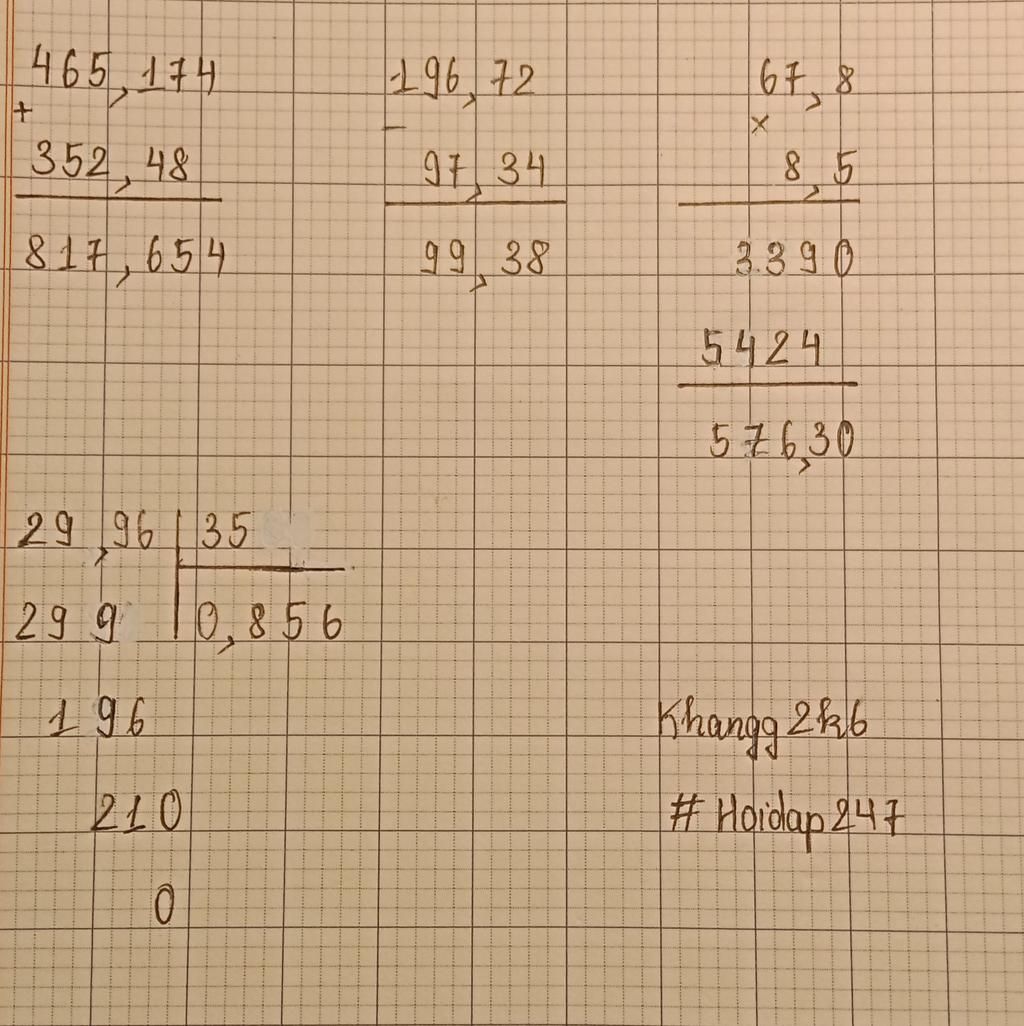 465,174
+
352,48
817,654
196,72
-
97,34
99,38
67,8
×
8,5
3390
5424
576,30
29,96 | 35
299 | 0,856
196
210
0
Khangg2k6
# Hoidap247